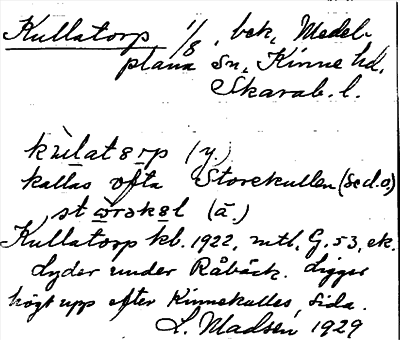 Kullatorp 1/8, bek, Medel-
plana Sn, Kinne hd.
Skarab. l.
kùlatɜrp (y.)
kallas ofta Storekullen (se d.o)
stòrəkɜl (ä.)
Kullatorp kb. 1922, mtl, G. 53, ek.
Lyder under Råbäck. Ligger
högt upp efter Kinnekulles sida.
L. Madsén 1929